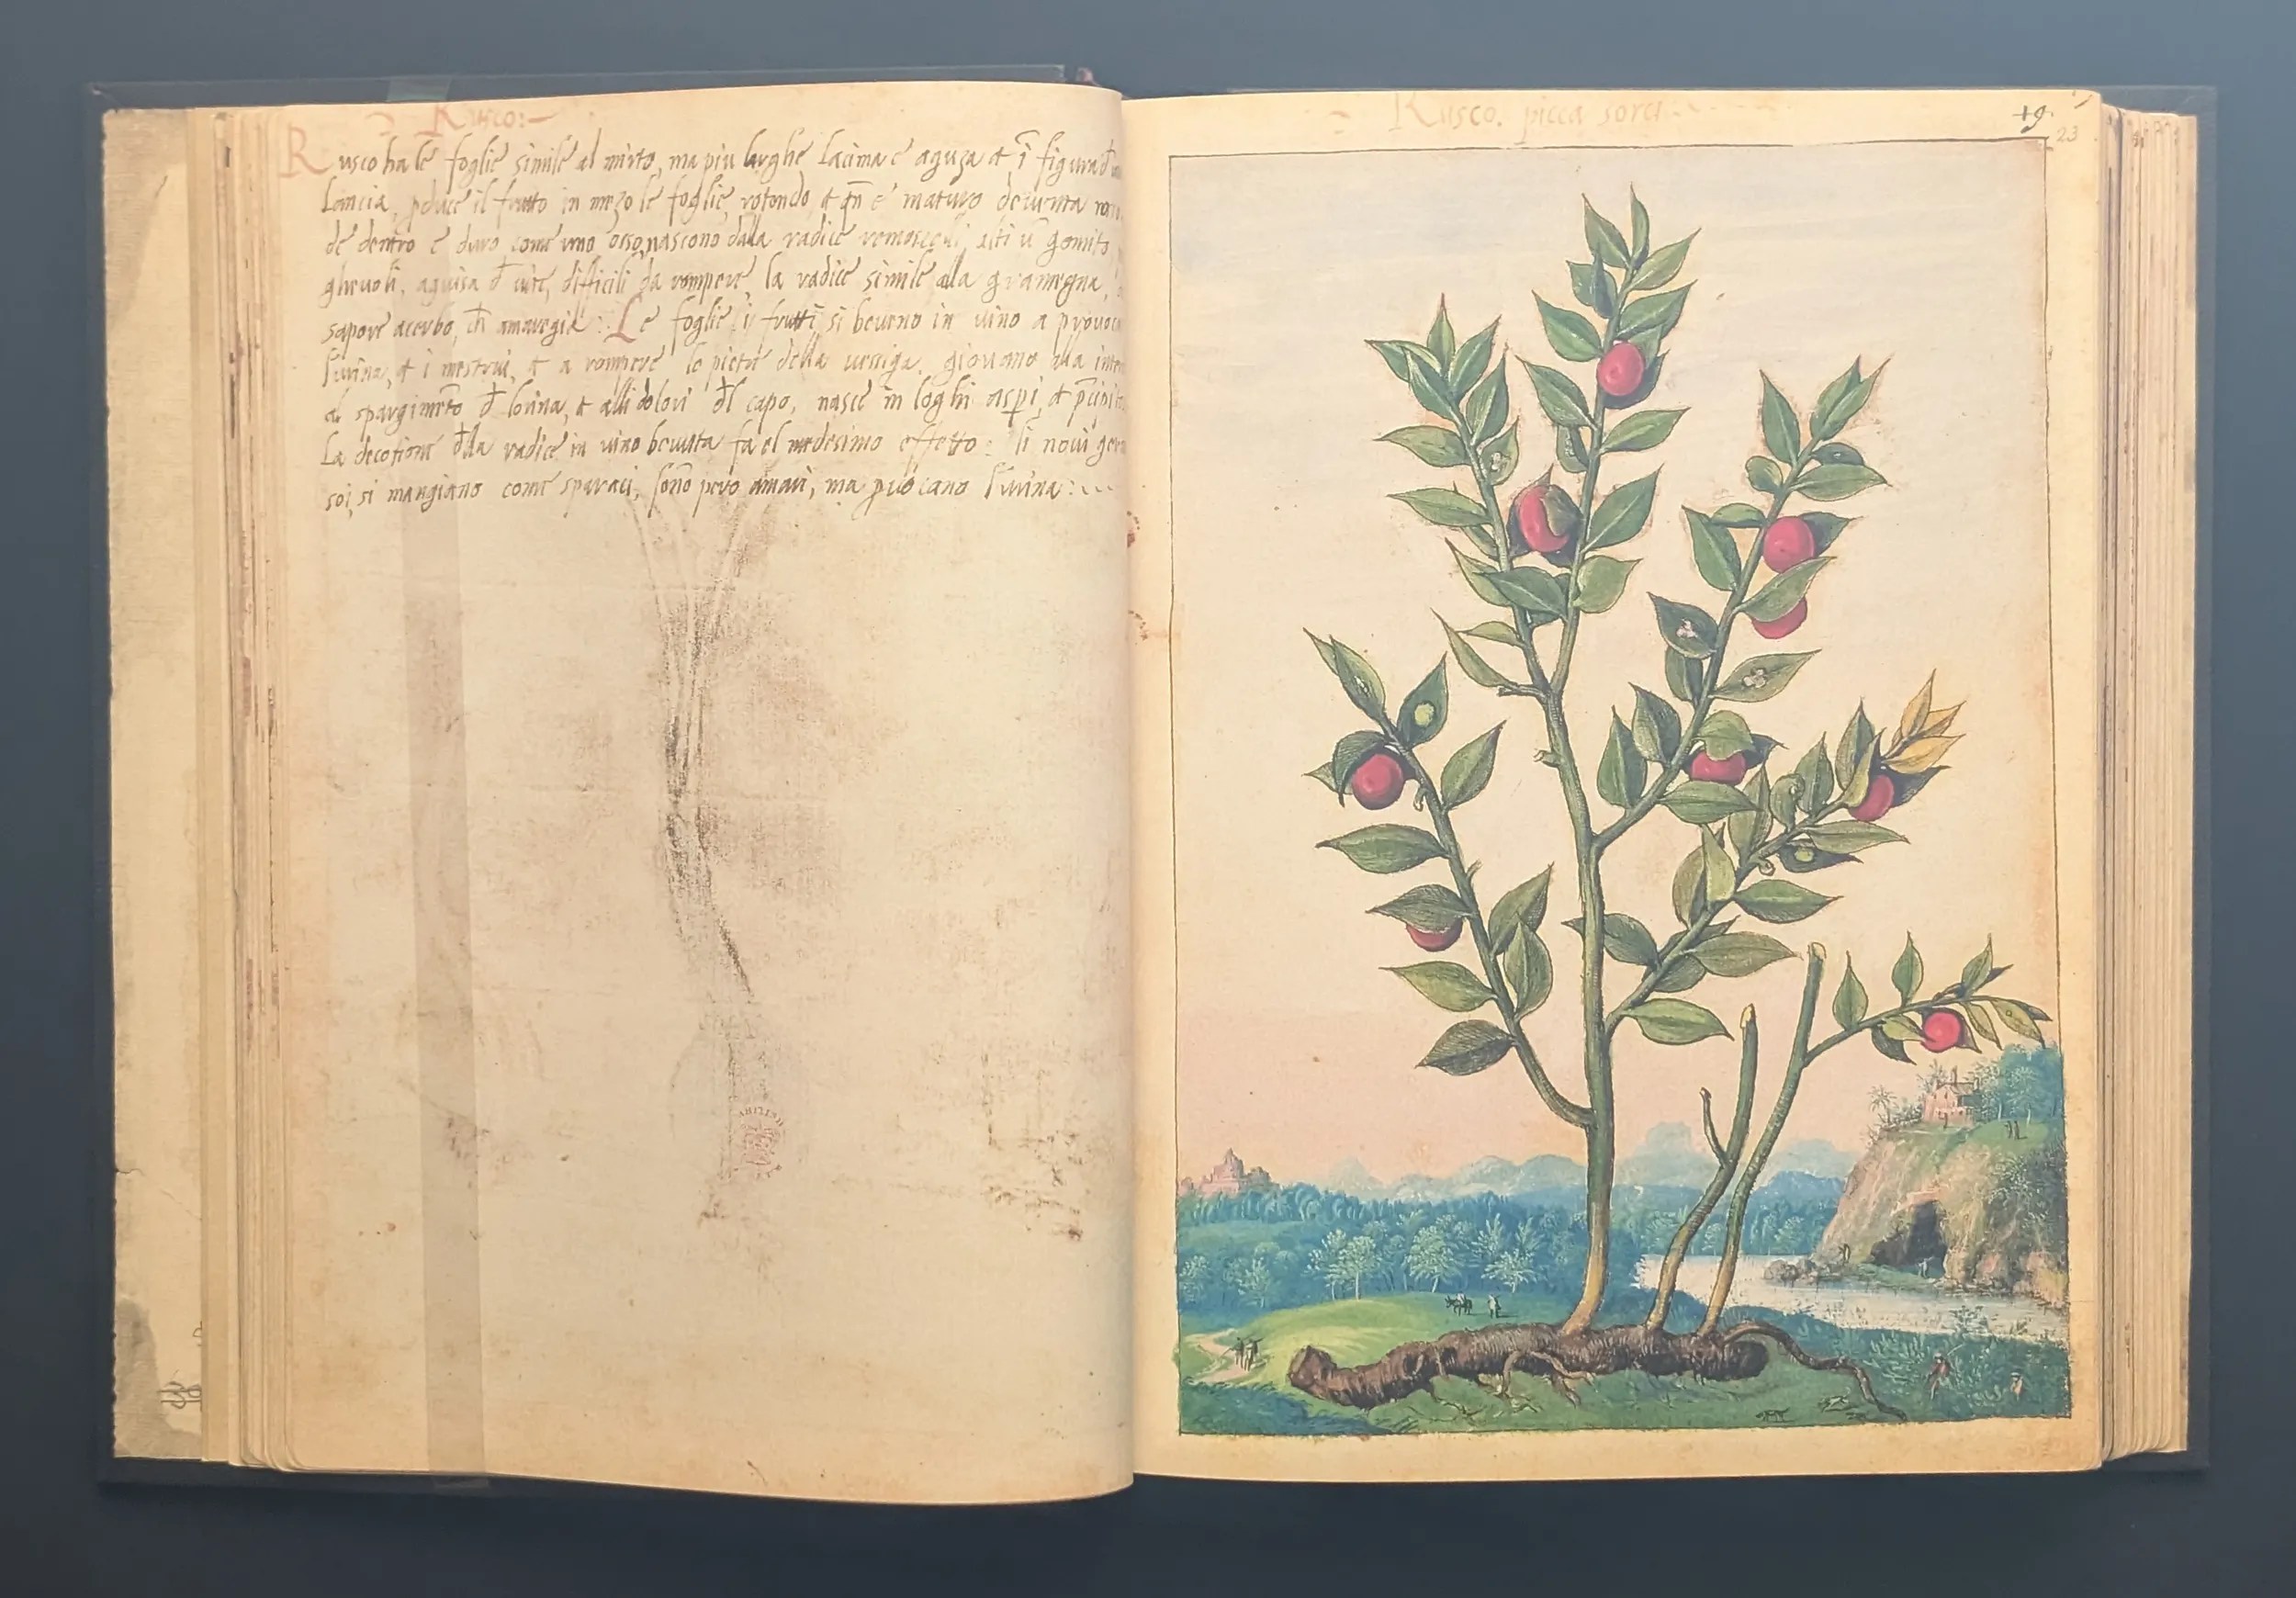 Rusco:~
Rusco ha le foglie simile al mirto, ma piu larghe la cima e aguza et ĩ figura đ
Lancia, pduce il frutto in mezo le foglie, rotondo, et qñ e maturo deventa
de dentro e duro come uno osso, nascono dalla radice remoscelli, alti ũ gomito,
ghevoli, aguisa đ vite, difficili da rompere, la radice simile alla gramegna,
sapore acerbo, ch̃ amaregia: Le foglie, i frutti, si beveno in vino a provoc
l'urina, et i mestrui, et a rompere le pietre della vesciga. giovano alla
al spargimẽto đ lorina, et alli dolori đl capo, nasce in loghi aspi, et
La decotione đlla radice in vino bevuta fa el medesimo effetto: li novi ger
soi, si mangiano come sparaci, sono pero amari, ma p̃vocano l'urina:~
Rusco. picca sorci
19
23